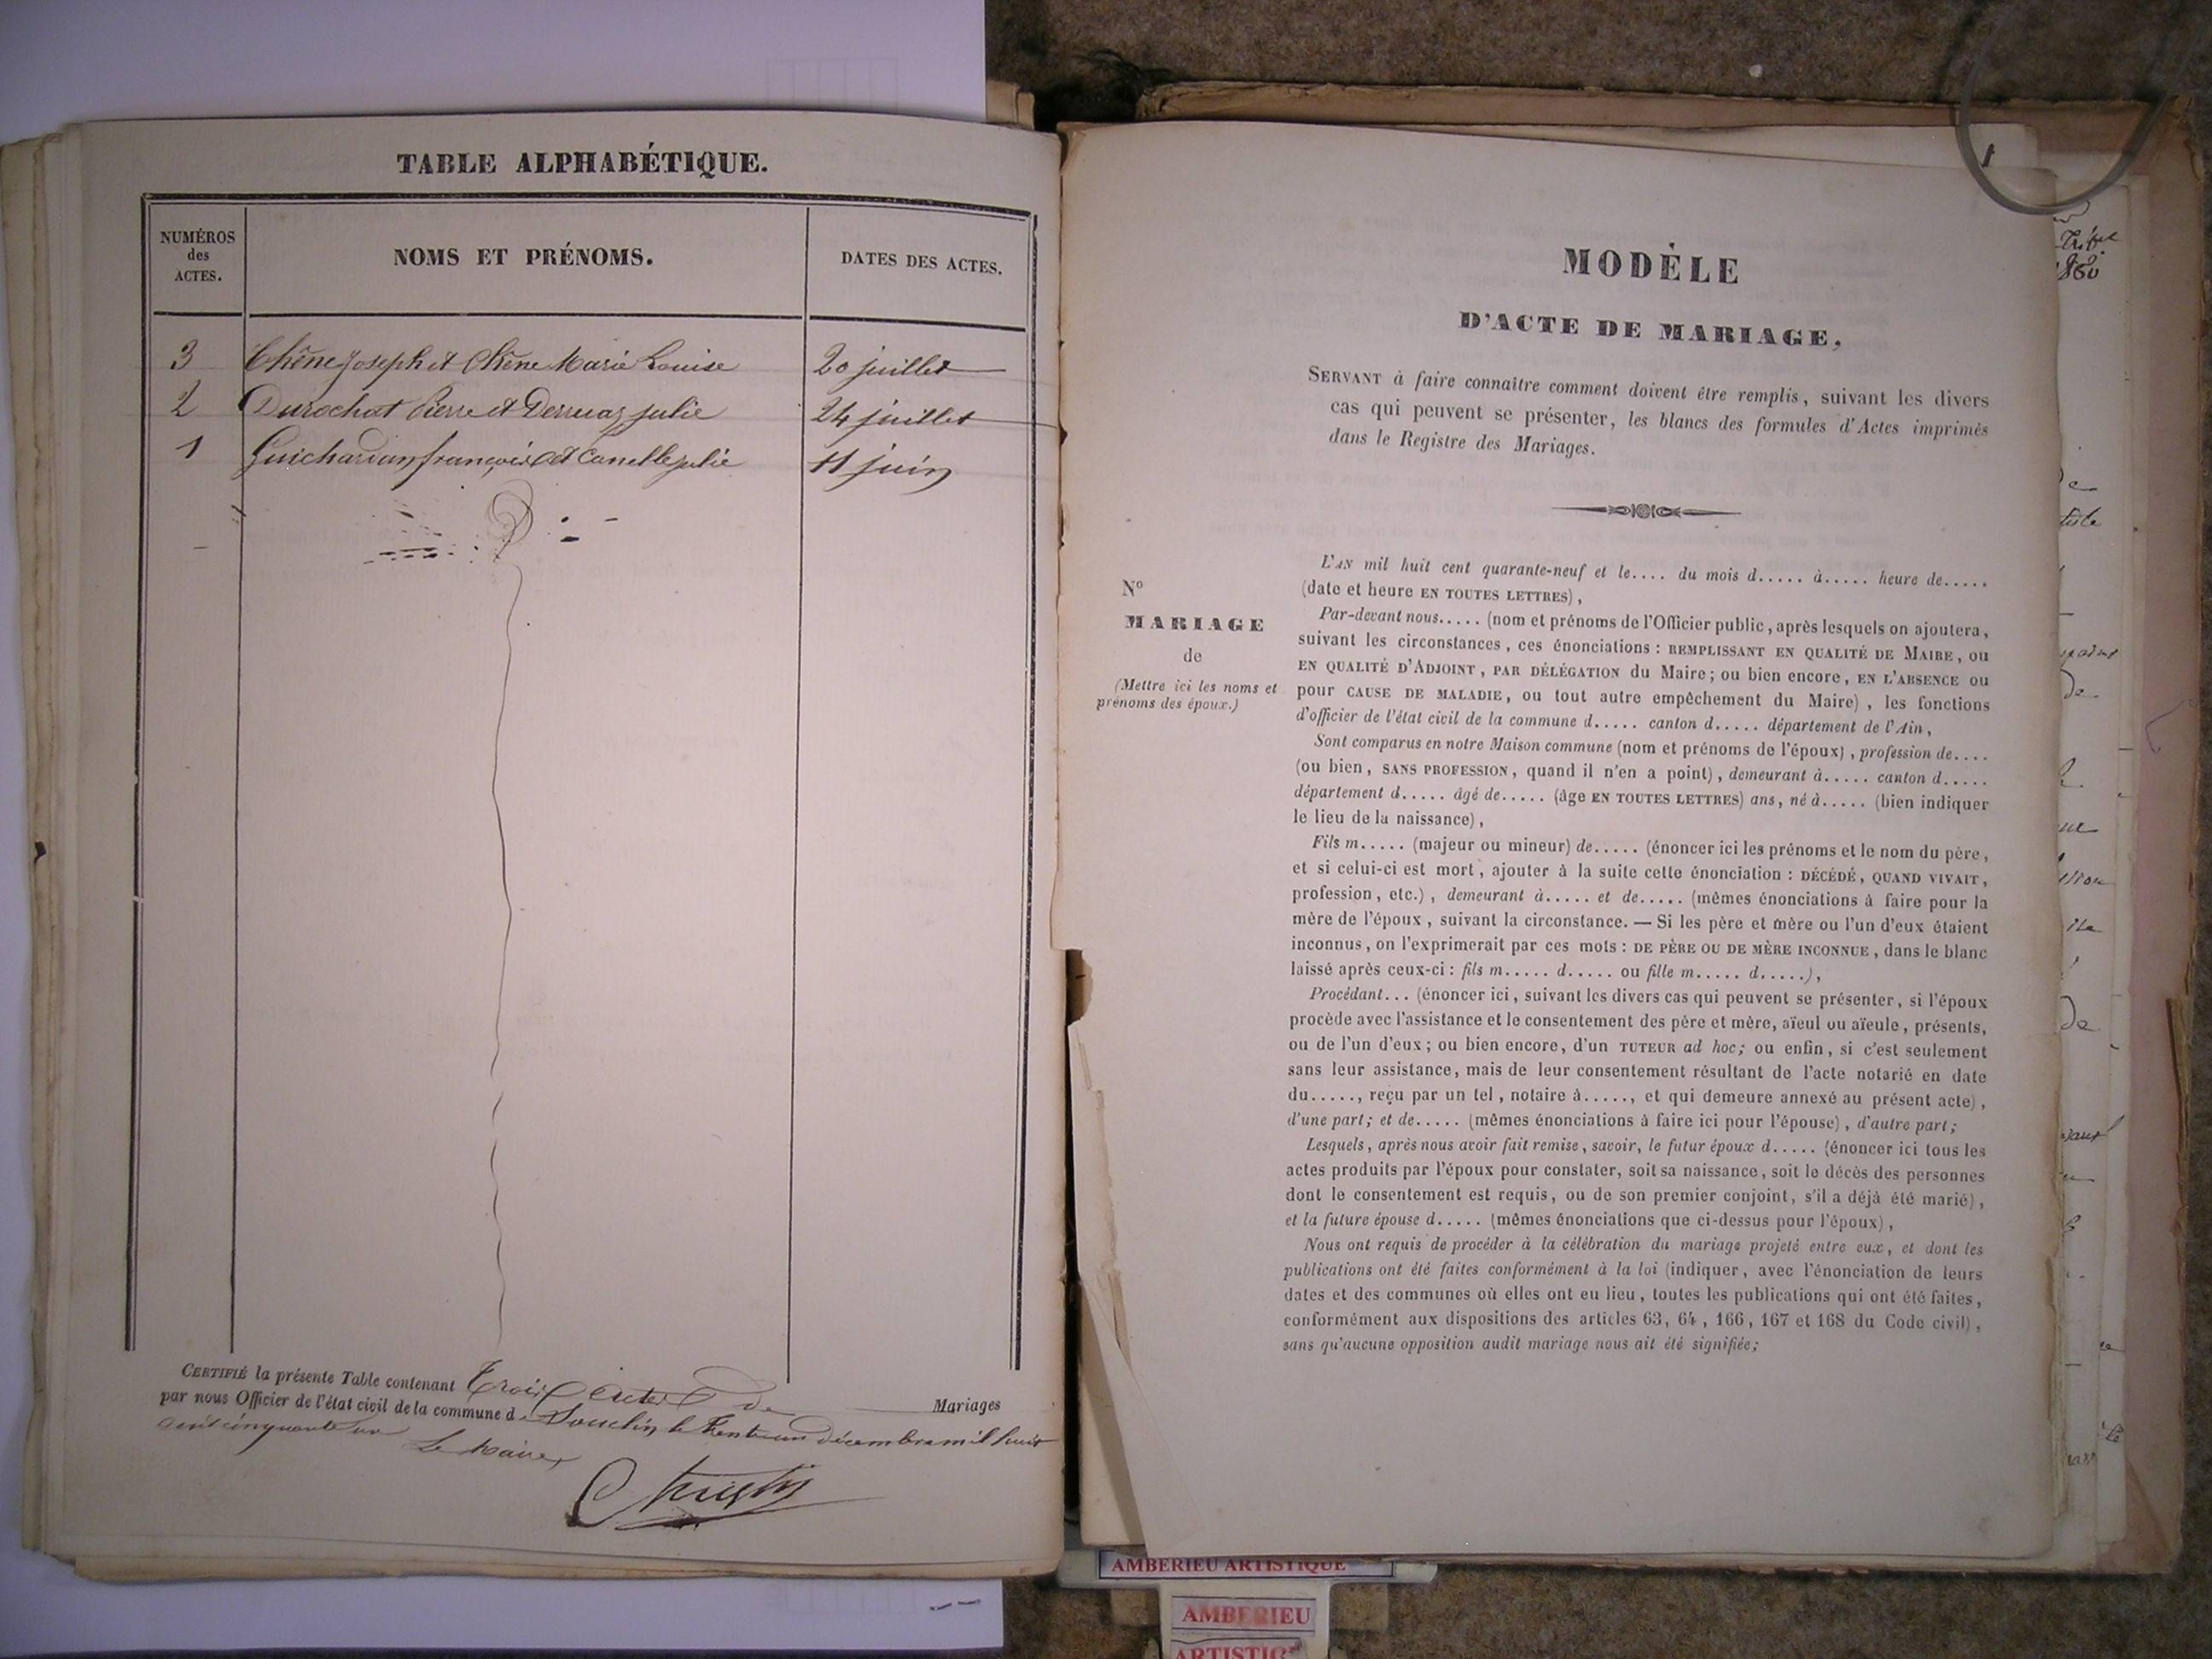 TABLE ALPHABÉTIQUE.
NUMÉROS
des
ACTES.
NOMS ET PRÉNOMS.
DATES DES ACTES.
3 Chêne Joseph et Chêne Marie Louise 20 juillet
2 Durochat Pierre et Derruaz julie 24 juillet
1 Guichardan françois et Canelle julie 11 juin
CERTIFIÉ la présente Table contenant Trois Actes de Mariages
par nous Officier de l'état civil de la commune d. Souclin le trente un décembre mil huit
cent cinquante un
Le Maire
MODÈLE
D'ACTE DE MARIAGE,
SERVANT à faire connaître comment doivent être remplis, suivant les divers
cas qui peuvent se présenter, les blancs des formules d'Actes imprimés
dans le Registre des Mariages.
N°
MARIAGE
de
(Mettre ici les noms et
prénoms des époux.)
L'AN mil huit cent quarante-neuf et le.... du mois d..... à..... heure de.....
(date et heure EN TOUTES LETTRES),
Par-devant nous..... (nom et prénoms de l'Officier public, après lesquels on ajoutera,
suivant les circonstances, ces énonciations : REMPLISSANT EN QUALITÉ DE MAIRE, ou
EN QUALITÉ D'ADJOINT, PAR DÉLÉGATION du Maire; ou bien encore, EN L'ABSENCE ou
pour CAUSE DE MALADIE, ou tout autre empêchement du Maire), les fonctions
d'officier de l'état civil de la commune d..... canton d..... département de l'Ain,
Sont comparus en notre Maison commune (nom et prénoms de l'époux), profession de....
(ou bien, SANS PROFESSION, quand il n'en a point), demeurant à..... canton d.....
département d..... âgé de..... (âge EN TOUTES LETTRES) ans, né à..... (bien indiquer
le lieu de la naissance),
Fils m..... (majeur ou mineur) de..... (énoncer ici les prénoms et le nom du père,
et si celui-ci est mort, ajouter à la suite cette énonciation : DÉCÉDÉ, QUAND VIVAIT,
profession, etc.), demeurant à..... et de..... (mêmes énonciations à faire pour la
mère de l'époux, suivant la circonstance. — Si les père et mère ou l'un d'eux étaient
inconnus, on l'exprimerait par ces mots : DE PÈRE OU DE MÈRE INCONNUE, dans le blanc
laissé après ceux-ci : fils m..... d..... ou fille m..... d.....),
Procédant... (énoncer ici, suivant les divers cas qui peuvent se présenter, si l'époux
procède avec l'assistance et le consentement des père et mère, aïeul ou aïeule, présents,
ou de l'un d'eux; ou bien encore, d'un TUTEUR ad hoc; ou enfin, si c'est seulement
sans leur assistance, mais de leur consentement résultant de l'acte notarié en date
du....., reçu par un tel, notaire à....., et qui demeure annexé au présent acte),
d'une part; et de..... (mêmes énonciations à faire ici pour l'épouse), d'autre part;
Lesquels, après nous avoir fait remise, savoir, le futur époux d..... (énoncer ici tous les
actes produits par l'époux pour constater, soit sa naissance, soit le décès des personnes
dont le consentement est requis, ou de son premier conjoint, s'il a déjà été marié),
et la future épouse d..... (mêmes énonciations que ci-dessus pour l'époux),
Nous ont requis de procéder à la célébration du mariage projeté entre eux, et dont les
publications ont été faites conformément à la loi (indiquer, avec l'énonciation de leurs
dates et des communes où elles ont eu lieu, toutes les publications qui ont été faites,
conformément aux dispositions des articles 63, 64, 166, 167 et 168 du Code civil),
sans qu'aucune opposition audit mariage nous ait été signifiée;
AMBERIEU ARTISTIQUE
AMBERIEU